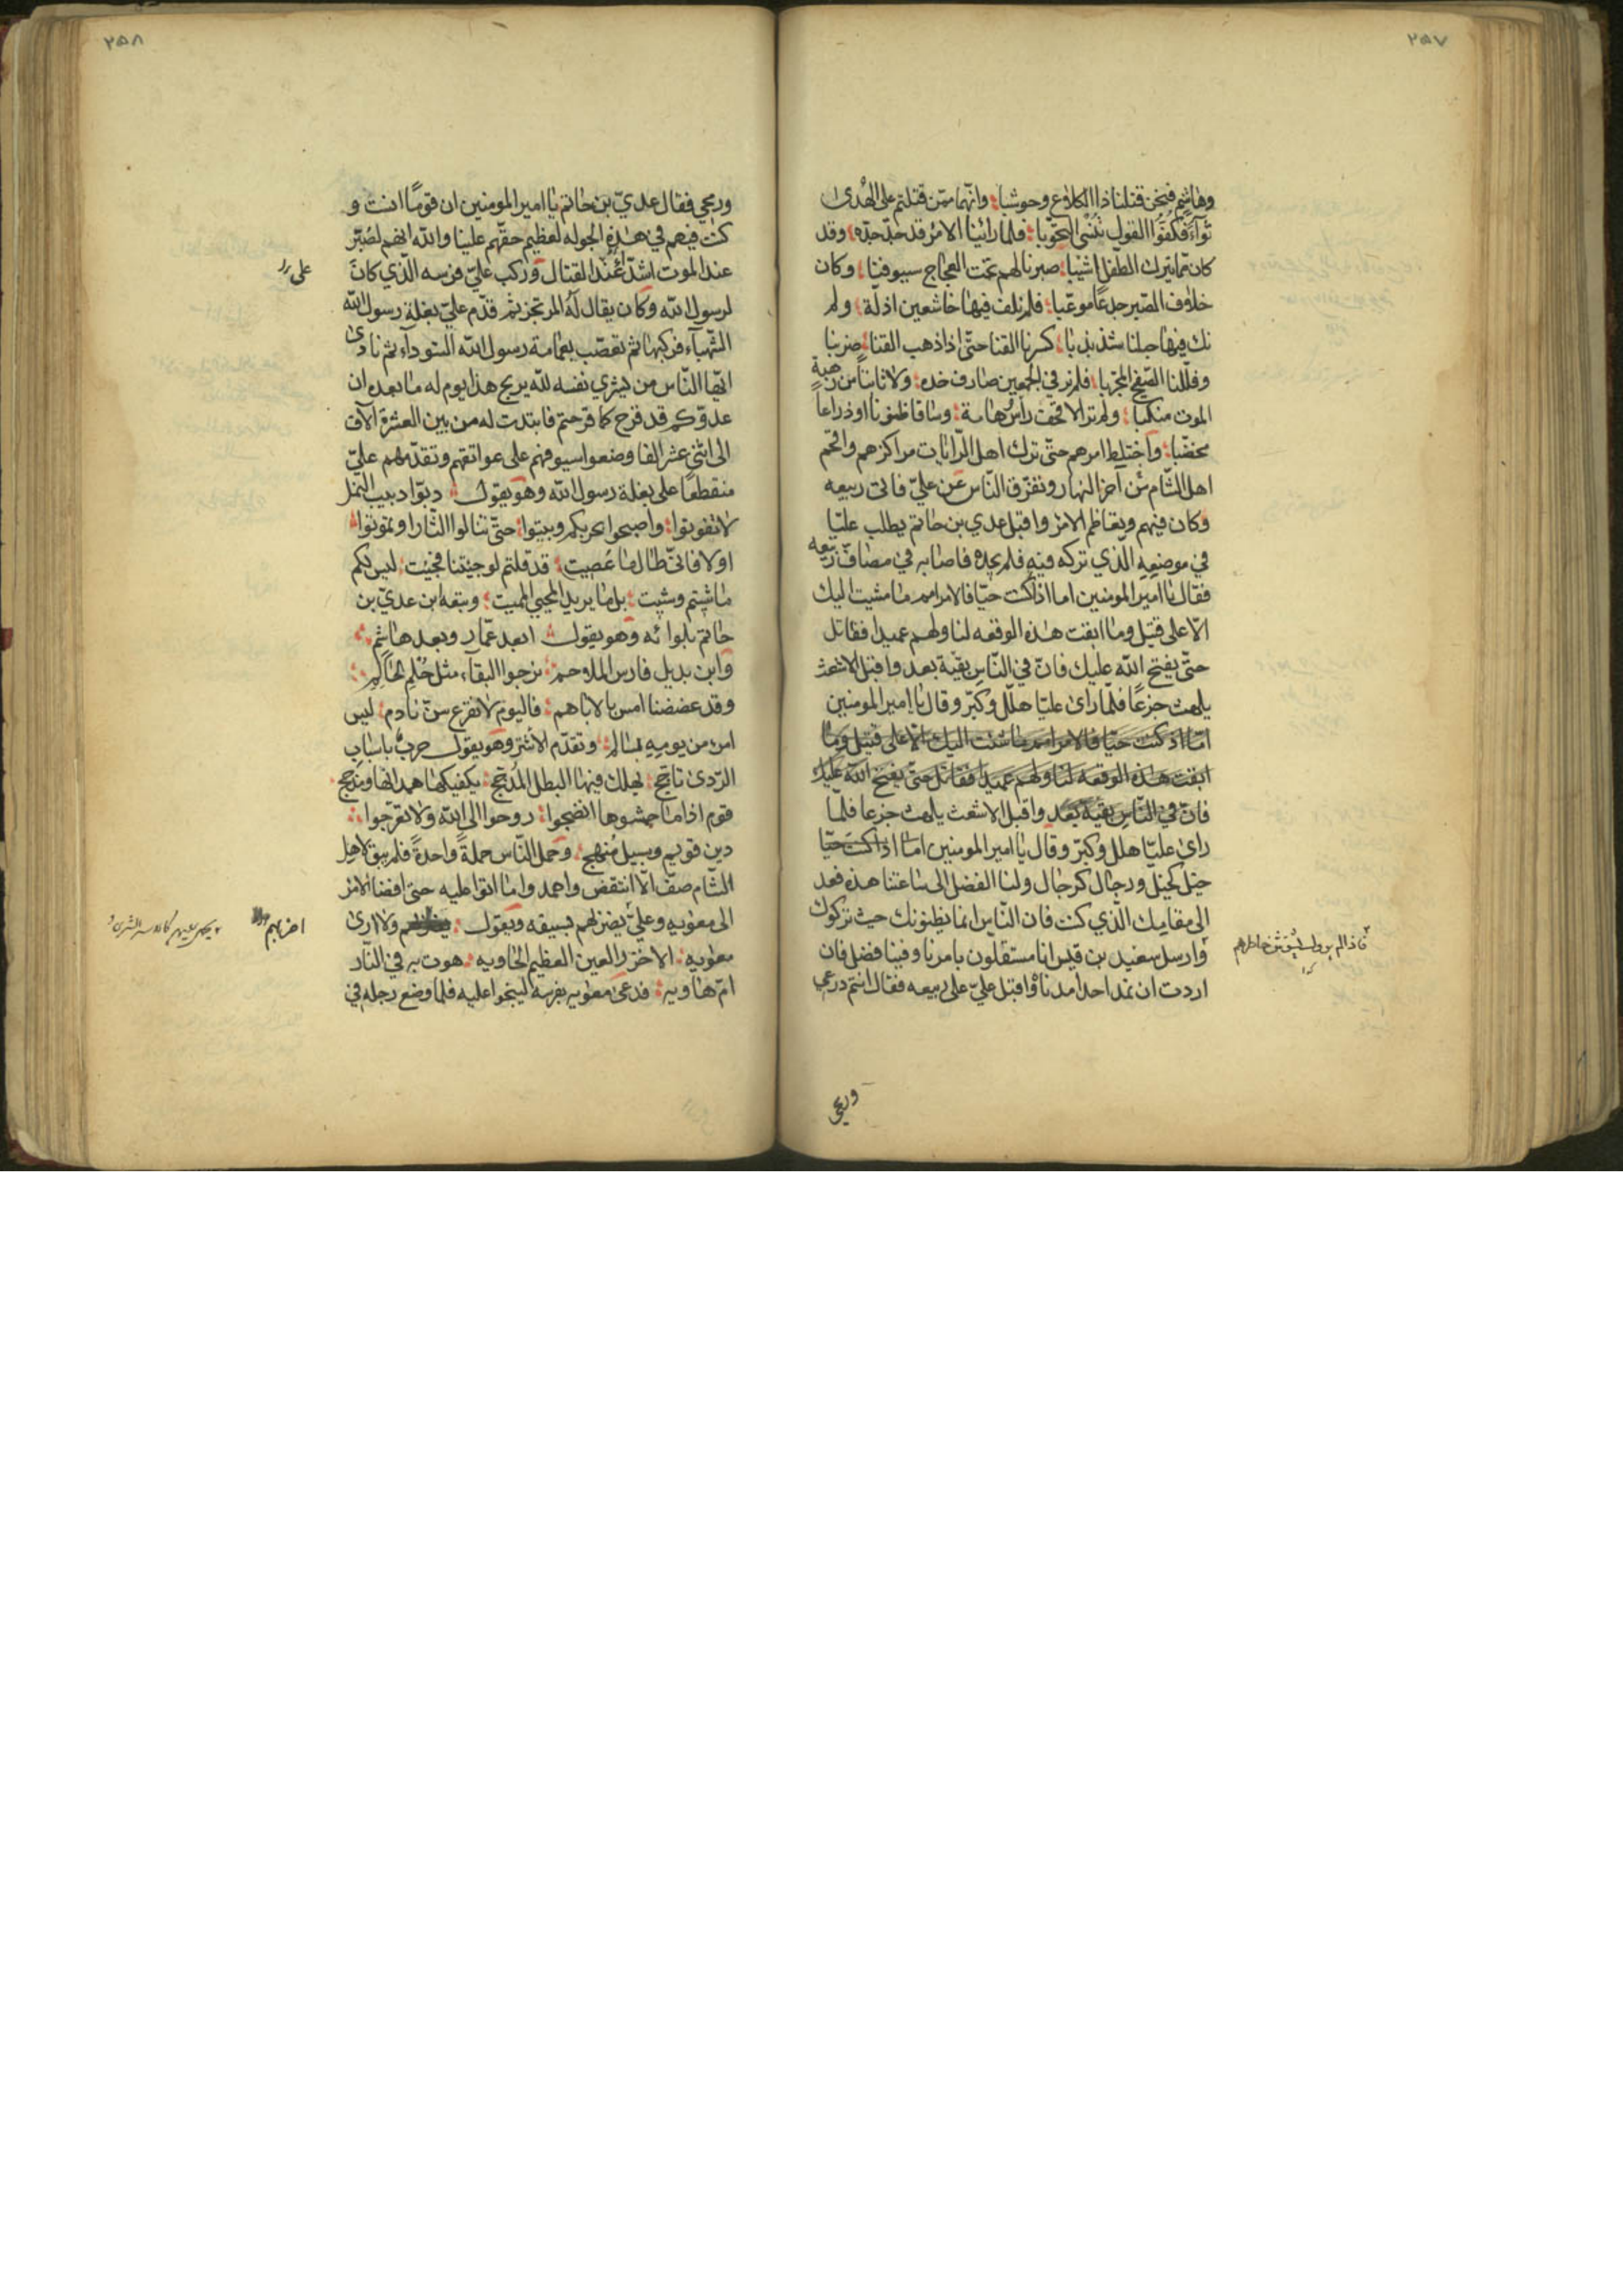 ٢٥٧
وهاشم فنحن قتلنا ذا الكلاع وحوشبا وانهما ممن قتلتم على الهدى
ثوآء فكفوا القول ننسى التحوبا فلما راينا الامر قد جد جده وقد
كان مما يترك الطفل اشيبا صبرنا لهم تحت العجاج سيوفنا وكان
خلاف الصبر جدعا موعبا فلم نلف فيها خاشعين اذلة ولم
نك فيها حبلنا متذبذبا كسرنا القنا حتى اذا ذهب القنا ضربنا
وفللنا الصفيح المجربا فلم نر في الجمعين صارف خده ولا ثانيا من رهبة
الموت منكبا ولم نر الا قحف راس وهامة وساقا ظنونا او ذراعا
مخضبا واختلط امرهم حتى ترك اهل الرايات مراكزهم واقحم
اهل الشام من آخر النهار وتفرق الناس عن علي فاتى ربيعه
وكان فيهم وتعاظم الامر واقبل عدي بن حاتم يطلب عليا
في موضعه الذي تركه فيه فلم يجده فاصابه في مصاف ربيعه
فقال يا امير المومنين اما اذا كنت حيا فالامر امم ما مشيت اليك
الا على قتيل وما ابقت هذه الوقعه لنا ولهم عميدا فقاتل
حتى يفتح الله عليك فان في الناس بقية بعد واقبل الاشعث
يلهث جزعا فلما راى عليا هلل وكبر وقال يا امير المومنين
اما اذ كنت حيا فالامر امم ما مشيت اليك الا على قتيل وما
ابقت هذه الوقعه لنا ولهم عميدا فقاتل حتى يفتح الله عليك
فان في الناس بقية بعد واقبل الاشعث يلهث جزعا فلما
راى عليا هلل وكبر وقال يا امير المومنين اما اذا كنت حيا
خيل كخيل ورجال كرجال ولنا الفضل الى ساعتنا هذه فعد
الى مقامك الذي كنت فان الناس انما يظنونك حيث تركوك
وارسل سعيد بن قيس انا مستقلون بامرنا وفينا فضل فان
اردت ان نمد احدا مددناه واقبل علي على ربيعه فقال انتم درعي
ورمحي
٢٥٨
ورمحي فقال عدي بن حاتم يا امير المومنين ان قوما انت و
كنت فيهم في هذه الجوله لعظيم حقهم علينا والله انهم لصبر
عند الموت اشدآء عند القتال وركب علي فرسه الذي كان
لرسول الله وكان يقال له المرتجز ثم قدم علي بغلة رسول الله
الشهبآء فركبها ثم تعصب بعمامة رسول الله السودآء ثم نادى
ايها الناس من يشري نفسه لله يربح هذا يوم له ما بعده ان
عدوكم قد قرح كما قرحتم فابتدت له من بين العشرة آلاف
الى اثني عشر الفا وضعوا سيوفهم على عواتقهم وتقدمهم علي
منقطعا على بغلة رسول الله وهو يقول دبوا دبيب النمل
لا تفوتوا واصبحوا بحربكم وبيتوا حتى تنالوا الثار او تموتوا
اولا فاني طال ما عصيت قد قلتم لو جئتنا فجيت ليس لكم
ما شيتم وشيت بل ما يريد المحيي المميت وتبعه ابن عدي بن
حاتم بلوائه وهو يقول ابعد عمار وبعد هاشم
وابن بديل فارس الملاحم نرجوا البقآء مثل حلم الحالم
وقد عضضنا امس بالاباهم فاليوم لا نقرع سن نادم ليس
امرء من يومه بسالم وتقدم الاشتر وهو يقول حرب باسباب
الردى تاجج يهلك فيها البطل المدجج يكفيكها همدانها ومذحج
قوم اذا ما حمشوها انضجوا روحوا الى الله ولا تعرجوا
دين قويم وسبيل منهج وحمل الناس حملة واحدة فلم يبق لاهل
الشام صف الا انتقض واهمد واما اتوا عليه حتى افضا الامر
الى معويه وعلي يضربهم بسيفه ويقول ولا ارى
معويه الاخزر العين العظيم الحاويه هوت به في النار
ام هاويه فدعى معويه بفرسه لينجوا عليه فلما وضع رجله في
اضربهم